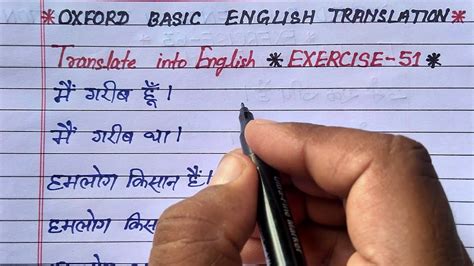 * OXFORD BASIC ENGLISH TRANSLATION *
Translate into English * EXERCISE-51 *
मैं गरीब हूँ।
मैं गरीब था।
हमलोग किसान हैं।
हमलोग